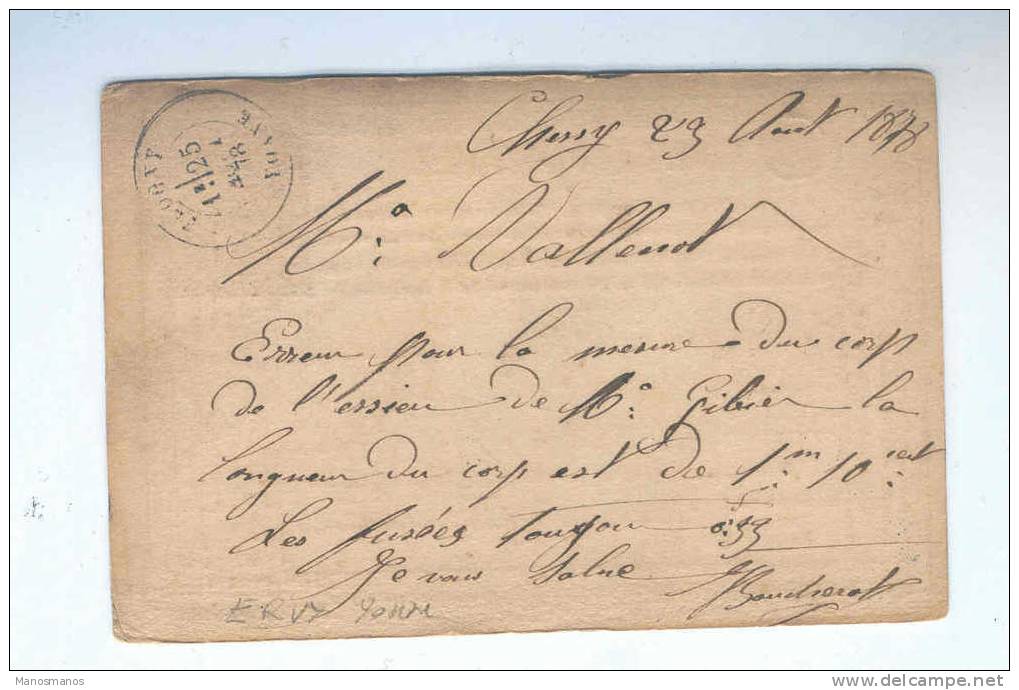 Chessy 23 Aout 1878
Mº Vallenot
Erreur pour la mesure du corp
de l'essieu de Mº Gibier la
longueur du corp est de 1m 10cent
Les fusées toujour 0:33
Je vous Salue Boucherat
ERVY YONNE
TROYE
12/25
AOUT
78
YONNE
Manosmanos
www.delcampe.net